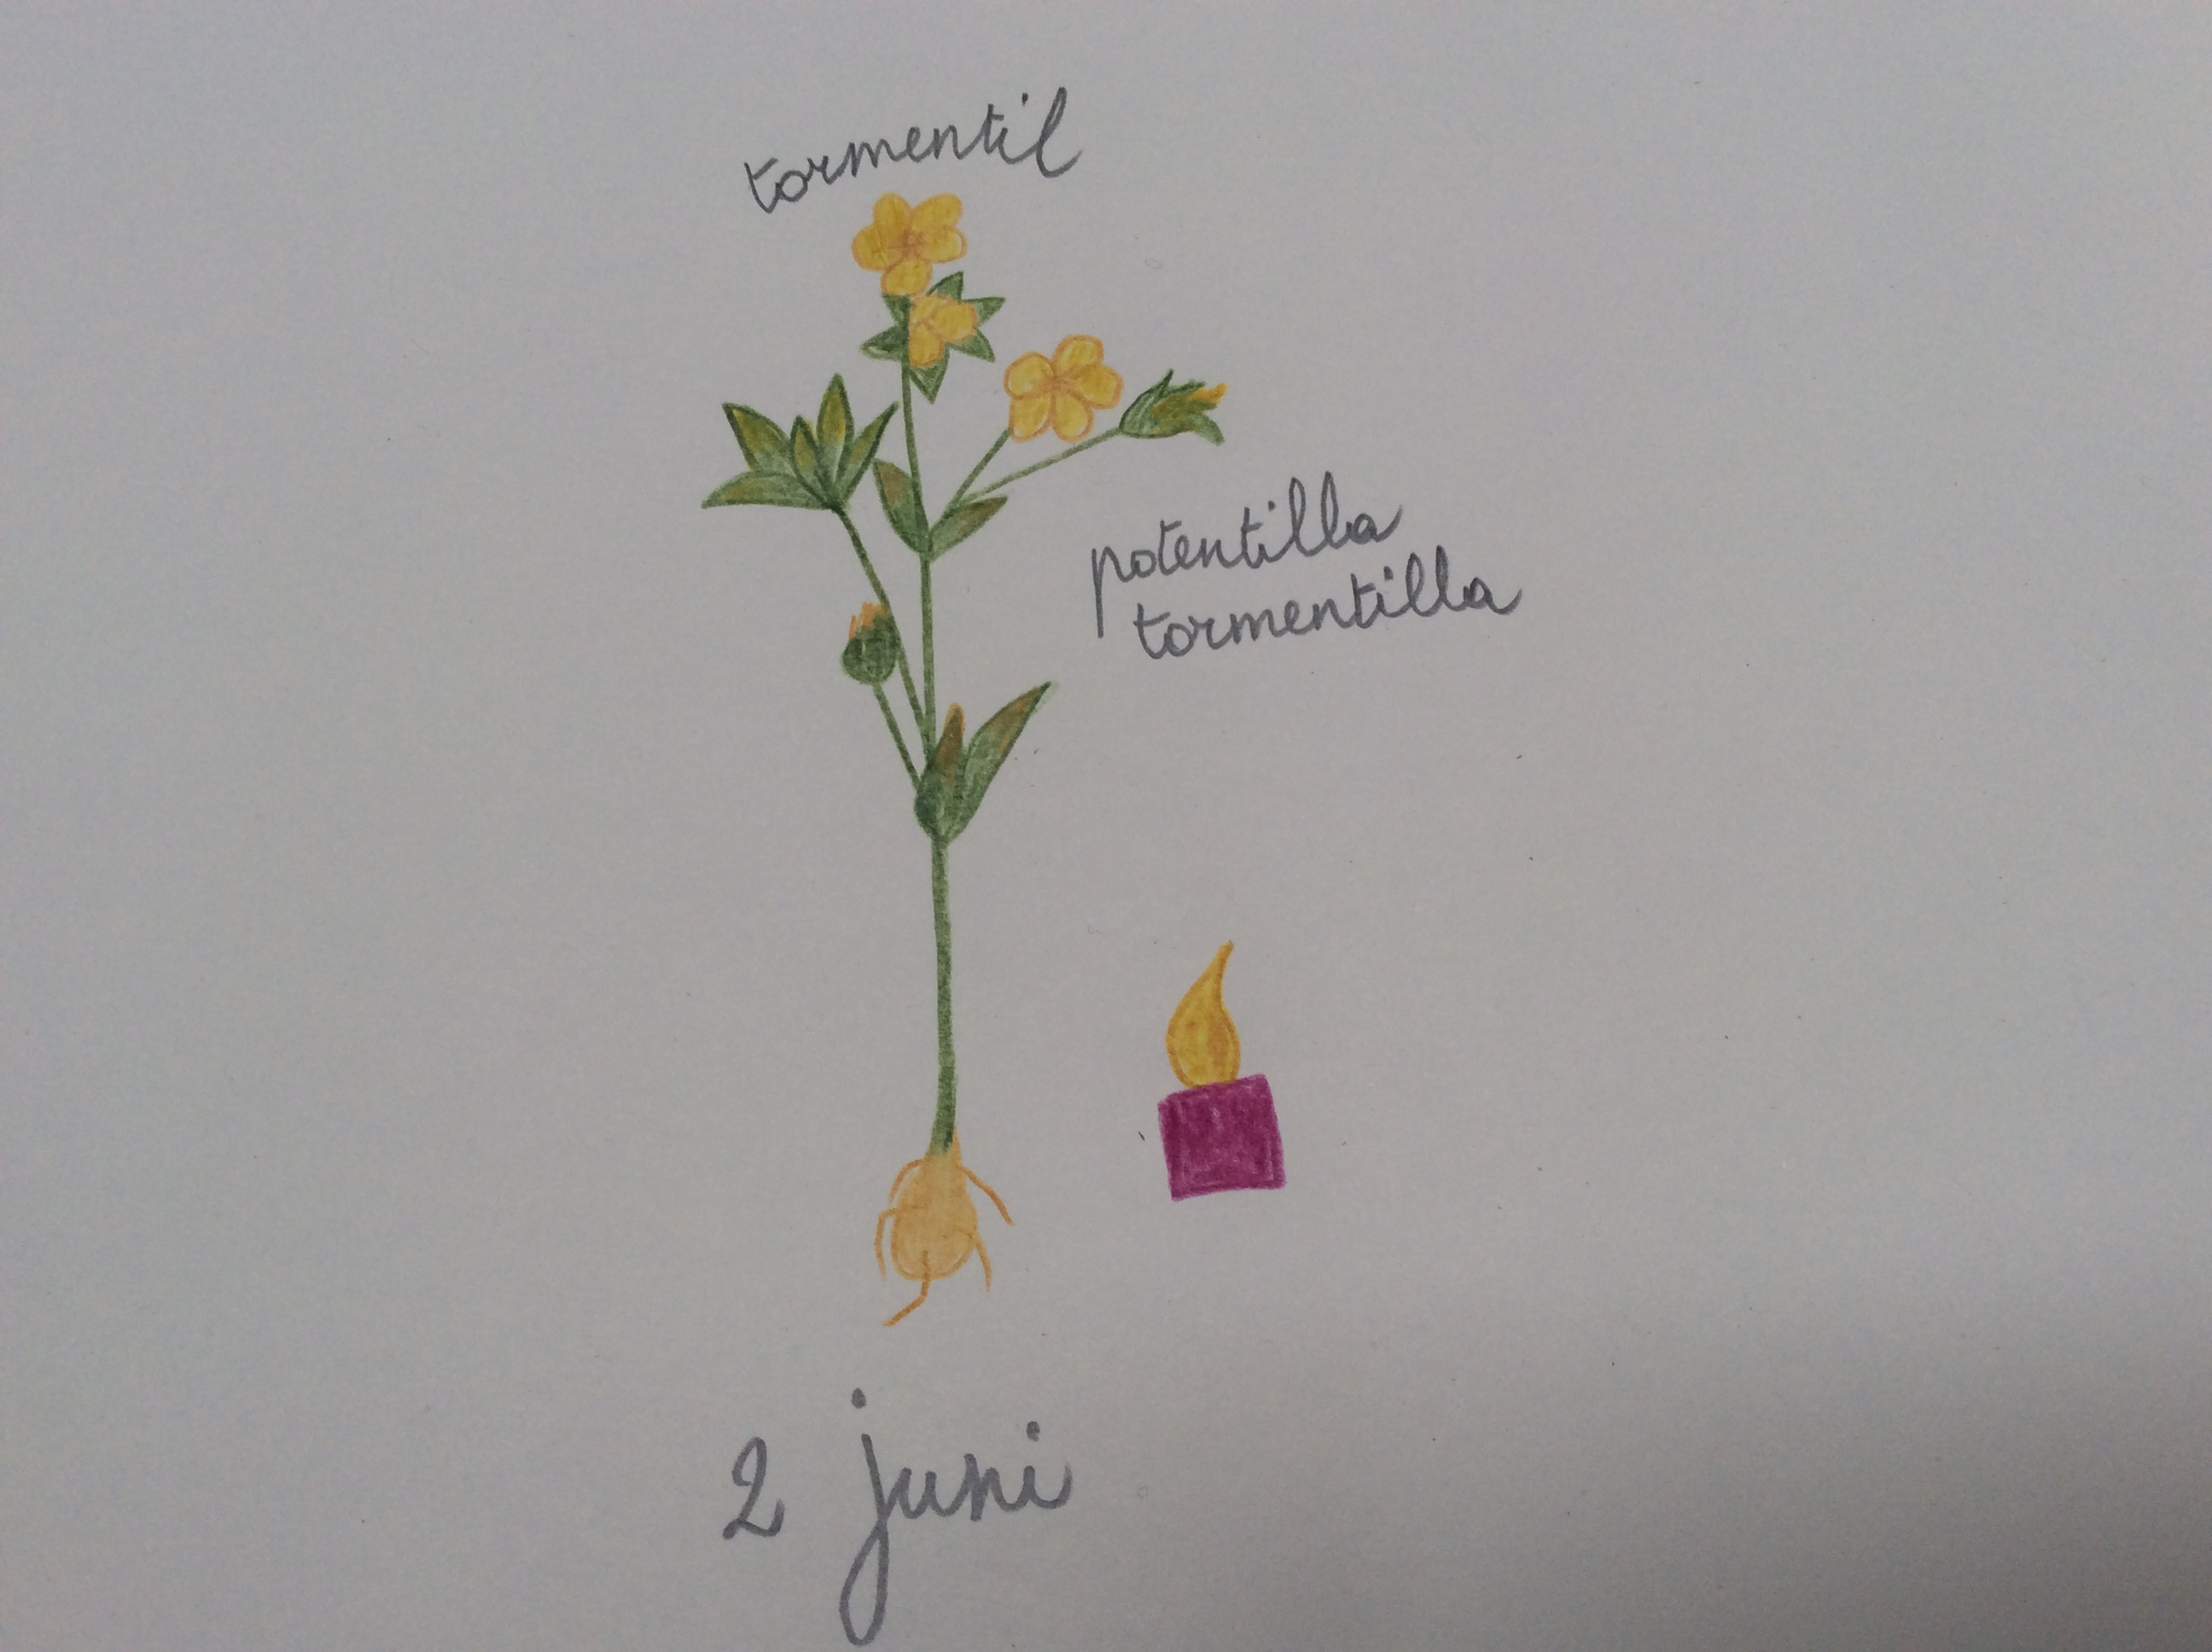 tormentil
potentilla
tormentilla
2 juni